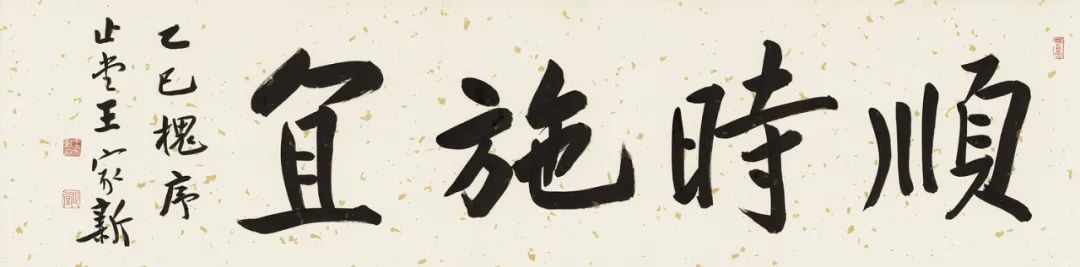 順時施宜
乙巳槐序
止堂王家新